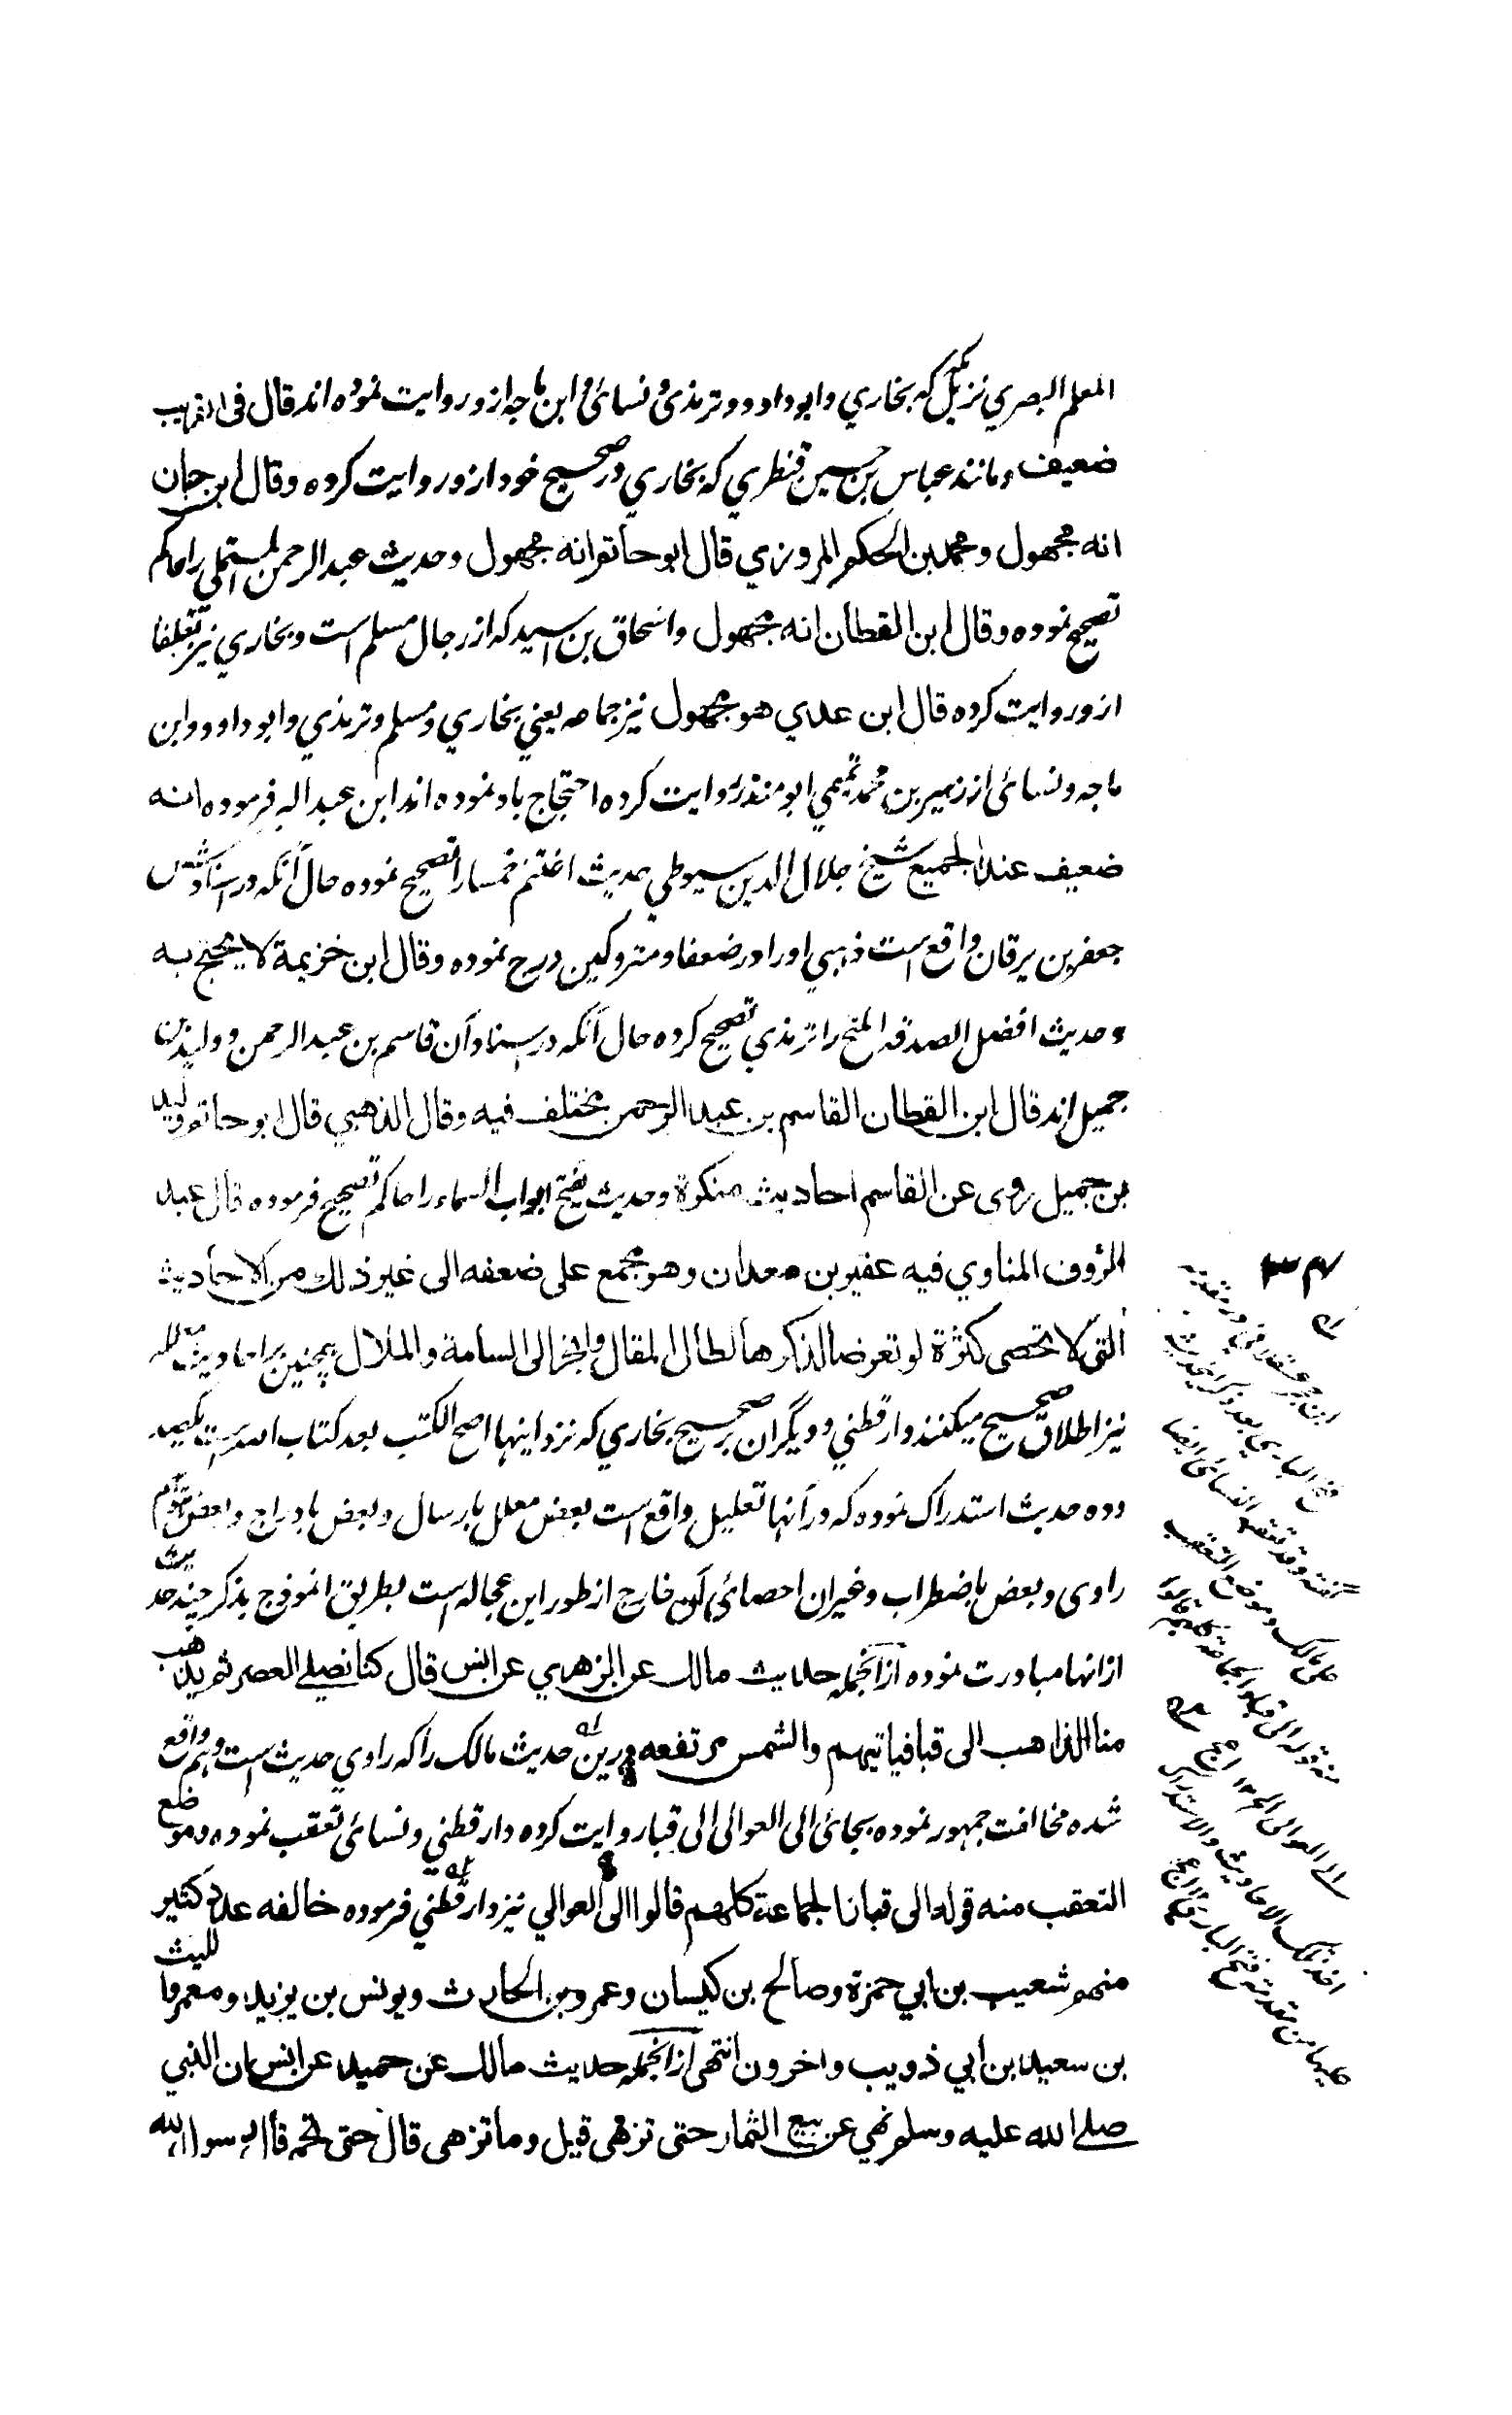 المعلم البصري نزيل مكه که بخاري وابوداود وترمذي ونسائي وابن ماجه ازو روايت نموده اند قال في التقريب
ضعيف ومانند عباس بن حسين قنطري که بخاري در صحيح خود ازو روايت کرده وقال ابن حبان
انه مجهول ومحمد بن الحکم المروزي قال ابو حاتم انه مجهول وحديث عبد الرحمن المستملي را حاکم
تصحيح نموده وقال ابن القطان انه مجهول واسحاق بن اسيد که از رجال مسلم است وبخاري نيز تعليقا
ازو روايت کرده قال ابن عدي هو مجهول نيز جماعه يعني بخاري ومسلم وترمذي وابو داود وابن
ماجه ونسائي از زهير بن محمد تميمي ابو منذر روايت کرده احتجاج باو نموده اند ابن عبد البر فرموده انه
ضعيف عند الجميع شيخ جلال الدين سيوطي حديث اغتنم خمسا را تصحيح نموده حال آنکه در اسنادش
جعفر بن برقان واقع است ذهبي او را در ضعفا ومتروکين درج نموده وقال ابن خزيمة لا يحتج به
وحديث افضل الصدقة المنح را ترمذي تصحيح کرده حال آنکه در اسناد آن قاسم بن عبد الرحمن ووليد بن
جميل اند قال ابن القطان القاسم بن عبد الرحمن مختلف فيه وقال الذهبي قال ابو حاتم وليد
بن جميل روى عن القاسم احاديث منکرة وحديث تفتح ابواب السماء را حاکم تصحيح فرموده قال عبد
الرؤوف المناوي فيه عفير بن معدان وهو مجمع على ضعفه الى غير ذلك من الاحاديث
التي لا تحصى کثرة لو تعرضنا لذکرها لطال المقال وانجر الى السامة والملال همچنين بر احاديث معلله
نيز اطلاق صحيح ميکنند دارقطني وديگران بر صحيح بخاري که نزد اينها اصح الکتب بعد کتاب الله است يکصد
وده حديث استدراک نموده که در آنها تعليل واقع است بعض معلل بارسال وبعض بادراج وبعض بتوهم
راوي وبعض باضطراب وغير آن احصائي آن خارج از طور اين عجاله است بطريق انموذج بذکر چند حديث
ازانها مبادرت نموده ازانجمله حديث مالك عن الزهري عن انس قال کنا نصلي العصر ثم يذهب
منا الذاهب الى قبا فياتيهم والشمس مرتفعه درين حديث مالک را که راوي حديث است وهم واقع
شده مخالفت جمهور نموده بجائ الى العوالي الى قبا روايت کرده دارقطني ونسائي تعقب نموده وموضع
التعقب منه قوله الى قبا نا لجماعة کلهم قالوا الى العوالي نيز دارقطني فرموده خالفه عدد کثير
منهم شعيب بن ابي حمزة وصالح بن کيسان وعمرو بن الحارث ويونس بن يزيد ومعمر والليث
بن سعيد ابن ابي ذويب واخرون انتهى ازانجمله حديث مالك عن حميد عن انس ان النبي
صلى الله عليه وسلم نهى عن بيع الثمار حتى تزهى قيل وما تزهى قال حتى تحمر قال رسول الله
ابن حجر عسقلاني در مقدمه
فتح الباري بعد ذکر اين حديث
گفته وقد تعقبه النسائي ايضا
على مالک وموضع التعقب
منه قوله الى قبا والجماعة کلهم قالوا
الى العوالي الخ ١٢
اخذ تلک الاحاديث والاستدراک
عليها من مقدمة فتح الباري